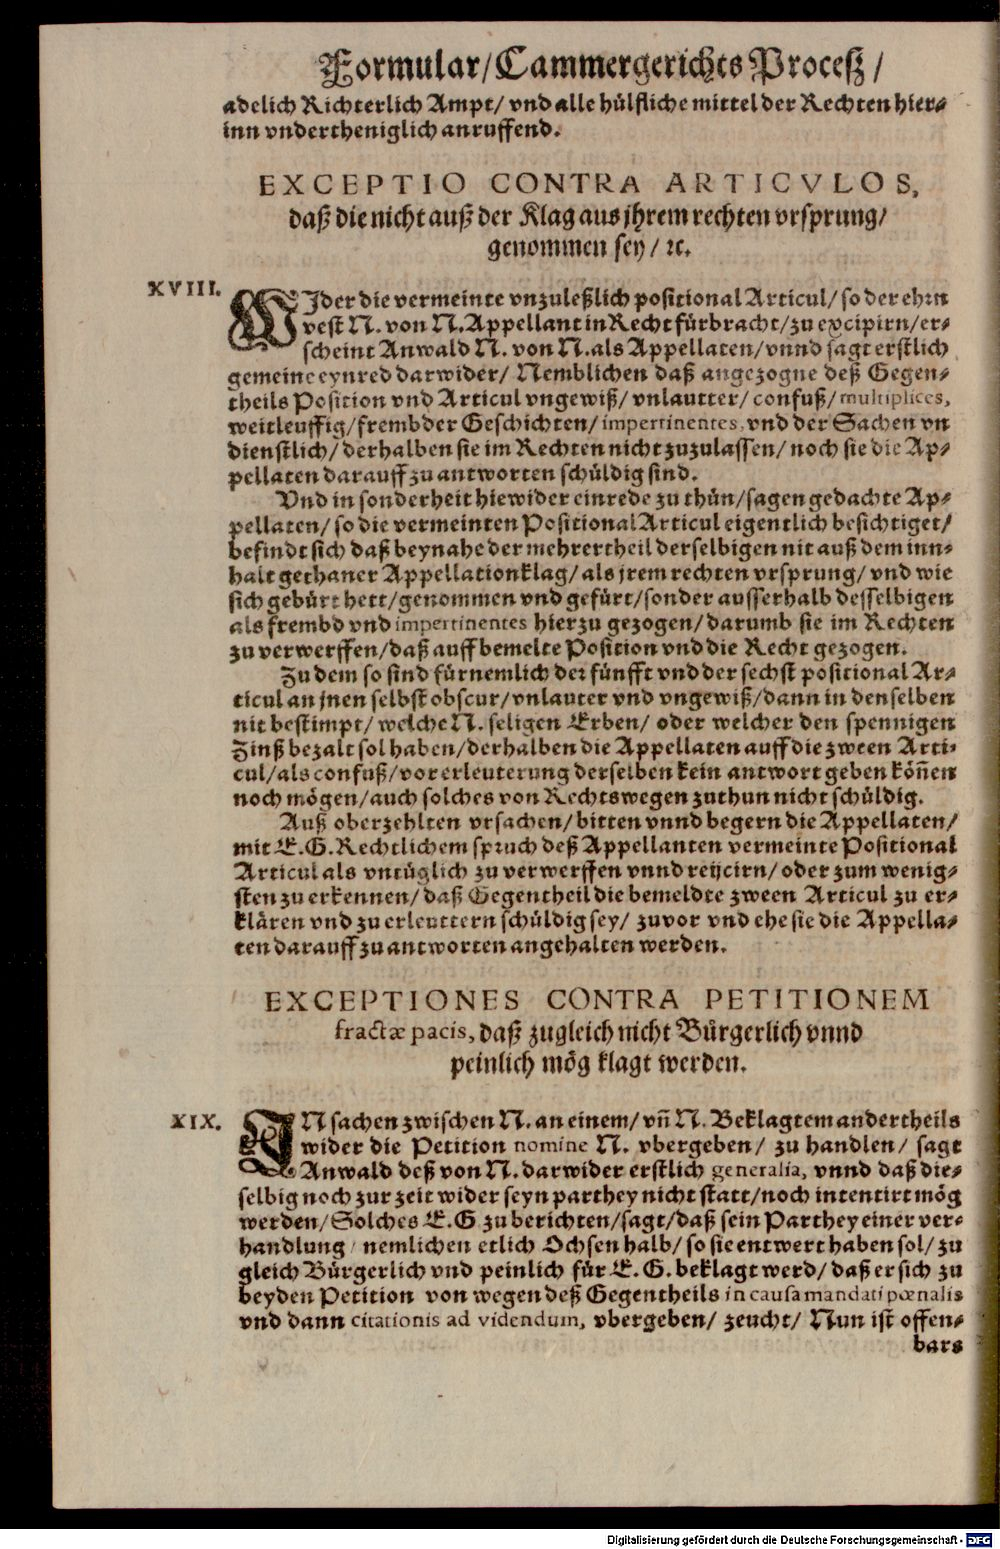 Formular/Cammergerichts Proceß/
adelich Richterlich Ampt/ vnd alle hülfliche mittel der Rechten hier-
inn vndertheniglich anruffend.
EXCEPTIO CONTRA ARTICVLOS,
daß die nicht auß der Klag aus jhrem rechten vrsprung/
genommen sey/ ꝛc.
XVIII.
WJder die vermeinte vnzuleßlich positional Articul/ so der ehrn
vest N. von N. Appellant in Recht fürbracht/ zu excipirn/ er-
scheint Anwald N. von N. als Appellaten/ vnnd sagt erstlich
gemeine eynred darwider/ Nemblichen daß angezogne deß Gegen-
theils Position vnd Articul vngewiß/ vnlautter/ confuß/ multiplices,
weitleuffig/ frembder Geschichten/ impertinentes, vnd der Sachen vn
dienstlich/ derhalben sie im Rechten nicht zuzulassen/ noch sie die Ap-
pellaten darauff zu antworten schüldig sind.
Vnd in sonderheit hiewider einrede zu thün/ sagen gedachte Ap-
pellaten/ so die vermeinten Positional Articul eigentlich besichtiget/
befindt sich daß beynahe der mehrertheil derselbigen nit auß dem inn-
halt gethaner Appellationklag/ als jrem rechten vrsprung/ vnd wie
sich gebürt hett/ genommen vnd gefürt/ sonder ausserhalb desselbigen
als frembd vnd impertinentes hierzu gezogen/ darumb sie im Rechten
zu verwerffen/ daß auff bemelte Position vnd die Recht gezogen.
Zu dem so sind fürnemlich der fünfft vnd der sechst positional Ar-
ticul an jnen selbst obscur/ vnlauter vnd vngewiß/ dann in denselben
nit bestimpt/ welche N. seligen Erben/ oder welcher den spennigen
Zinß bezalt sol haben/ derhalben die Appellaten auff die zween Arti-
cul/ als confuß/ vor erleuterung derselben kein antwort geben köñen
noch mögen/ auch solches von Rechtswegen zuthun nicht schüldig.
Auß oberzehlten vrsachen/ bitten vnnd begern die Appellaten/
mit E.G. Rechtlichem spruch deß Appellanten vermeinte Positional
Articul als vntüglich zu verwerffen vnnd reijcirn/ oder zum wenig-
sten zu erkennen/ daß Gegentheil die bemeldte zween Articul zu er-
klären vnd zu erleuttern schüldig sey/ zuvor vnd ehe sie die Appella-
ten darauff zu antworten angehalten werden.
EXCEPTIONES CONTRA PETITIONEM
fractæ pacis, daß zugleich nicht Bürgerlich vnnd
peinlich mög klagt werden.
XIX.
IN sachen zwischen N. an einem/ vñ N. Beklagtem andertheils
wider die Petition nomine N. vbergeben/ zu handlen/ sagt
Anwald deß von N. darwider erstlich generalia, vnnd daß die-
selbig noch zur zeit wider seyn parthey nicht statt/ noch intentirt mög
werden/ Solches E.G. zu berichten/ sagt/ daß sein Parthey einer ver-
handlung/ nemlichen etlich Ochsen halb/ so sie entwert haben sol/ zu
gleich Bürgerlich vnd peinlich für E.G. beklagt werd/ daß er sich zu
beyden Petition von wegen deß Gegentheils in causa mandati pœnalis
vnd dann citationis ad videndum, vbergeben/ zeucht/ Nun ist offen-
bars
Digitalisierung gefördert durch die Deutsche Forschungsgemeinschaft - DFG